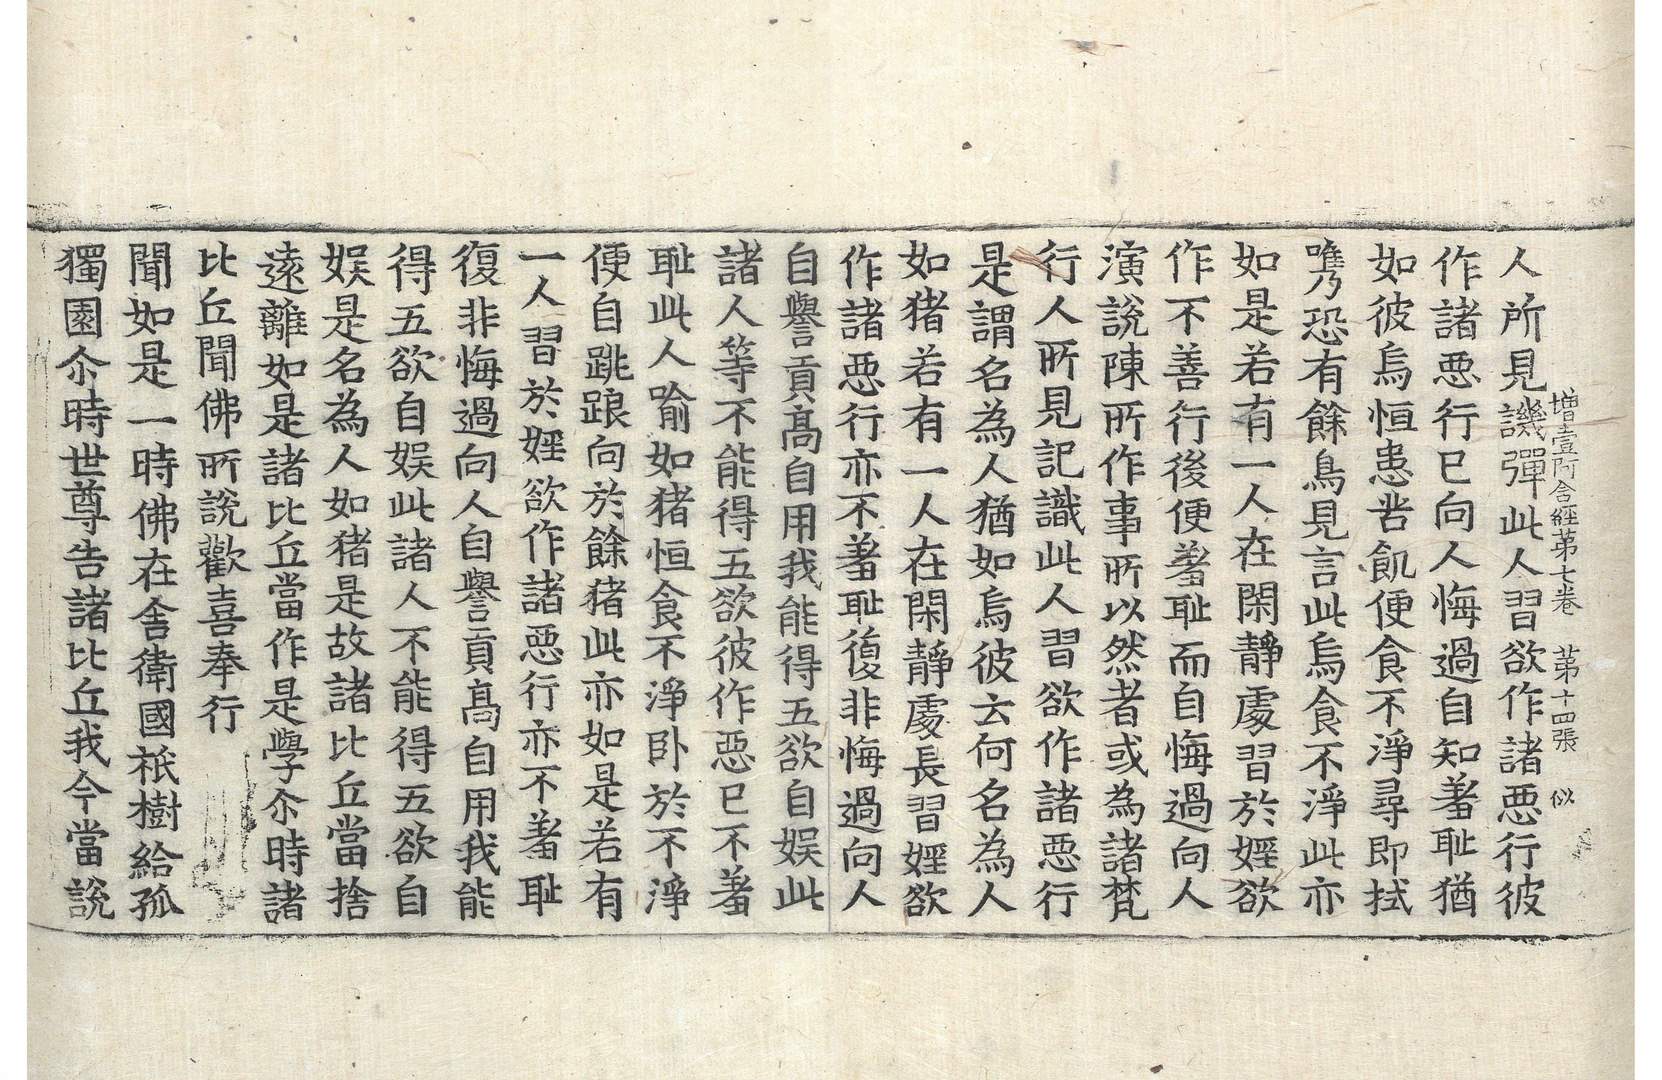 增壹阿含經第七卷 第十四張 似
人所見譏彈此人習欲作諸惡行彼
作諸惡行已向人悔過自知羞耻猶
如彼烏恒患苦飢便食不淨尋即拭
㭰乃恐有餘鳥見言此烏食不淨此亦
如是若有一人在閑靜處習於婬欲
作不善行後便羞耻而自悔過向人
演說陳所作事所以然者或為諸梵
行人所見記識此人習欲作諸惡行
是謂名為人猶如烏彼云何名為人
如猪若有一人在閑靜處長習婬欲
作諸惡行亦不羞耻復非悔過向人
自譽貢高自用我能得五欲自娛此
諸人等不能得五欲彼作惡已不羞
耻此人喻如猪恒食不淨卧於不淨
便自跳踉向於餘猪此亦如是若有
一人習於婬欲作諸惡行亦不羞耻
復非悔過向人自譽貢高自用我能
得五欲自娛此諸人不能得五欲自
娛是名為人如猪是故諸比丘當捨
遠離如是諸比丘當作是學尒時諸
比丘聞佛所說歡喜奉行
聞如是一時佛在舍衛國祇樹給孤
獨園尒時世尊告諸比丘我今當說